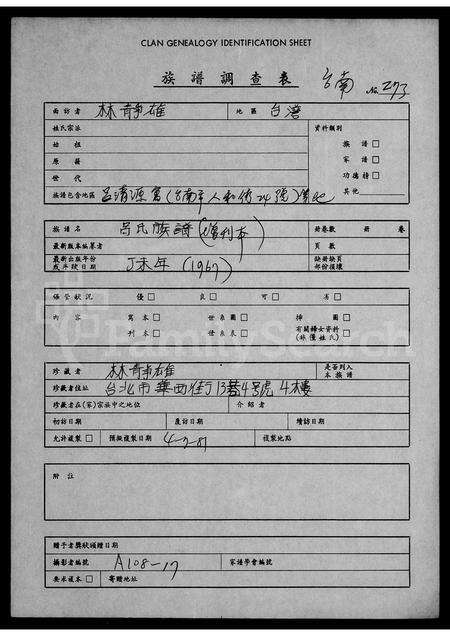 CLAN GENEALOGY IDENTIFICATION SHEET
族譜調查表 台南 No. 273
面訪者 林靜雄 地區 台灣
姓氏宗派 資料類別
始祖 族譜□
原籍 家譜□
世代 功德榜□
族譜包含地區 呂清源寫(台南市人和街24號) 其他
族譜名 呂氏族譜(增刊本) 冊卷數 冊 卷
最新版本編纂者 頁數
最新出版年份或手稿日期 丁未年(1967) 缺冊缺頁部份損壞
保管狀況 優□ 良□ 可□ 有□
內容 寫本□ 世系圖□ 揷圖□
刊本□ 世系表□ 有關婦女資料(非僅姓氏)□
珍藏者 林靜雄 是否列入本族譜
珍藏者住址 台北市華西街13巷4號 4樓
珍藏者在(家)宗族中之地位 介紹者
初訪日期 重訪日期 續訪日期
允許複製□ 預擬複製日期 4-2-81 複製地點
附註
贈予者獎狀頒贈日期
攝影者編號 A108-17 家譜學會編號
要求複本□ 寄贈地址
FamilySearch